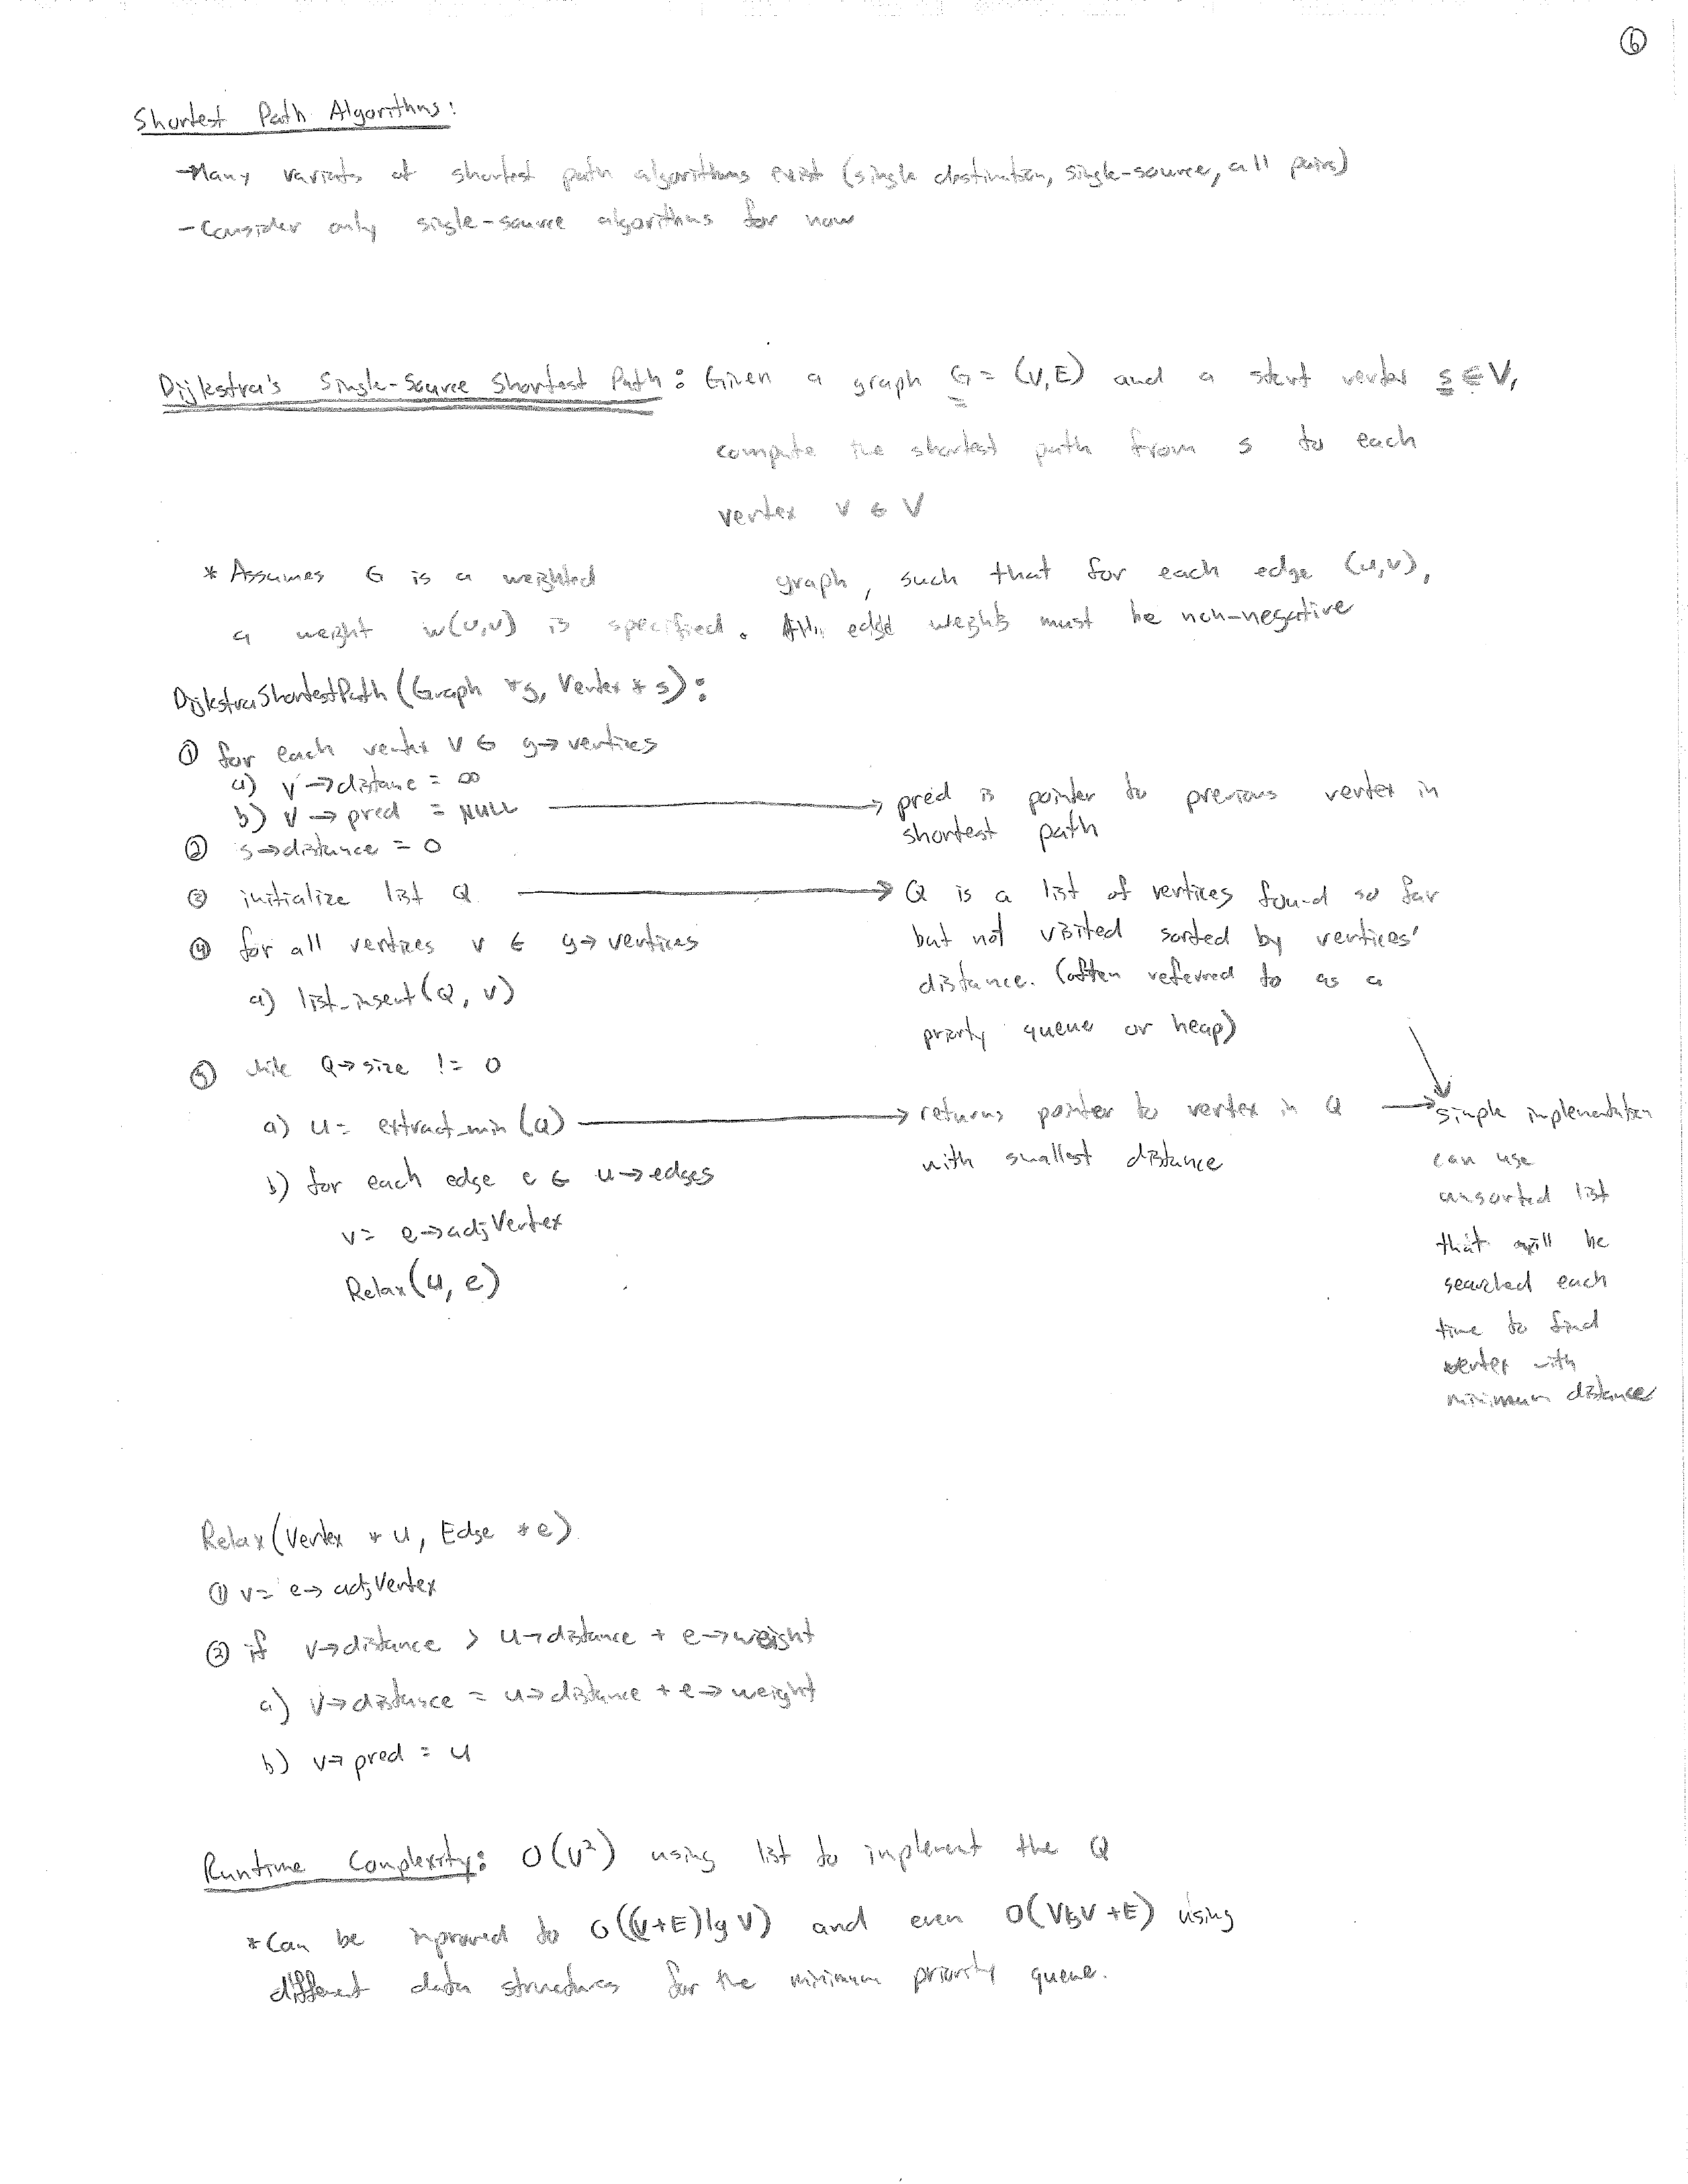 6
Shortest Path Algorithms:
-Many variants of shortest path algorithms exist (single destination, single-source, all pairs)
-Consider only single-source algorithms for now
Dijkstra's Single-Source Shortest Path: Given a graph G = (V,E) and a start vertex s ∈ V,
compute the shortest path from s to each
vertex v ∈ V
* Assumes G is a weighted graph, such that for each edge (u,v),
a weight w(u,v) is specified. All edge weights must be non-negative
DijkstraShortestPath(Graph *g, Vertex *s):
① for each vertex v ∈ g→vertices
a) v→distance = ∞
b) v→pred = NULL → pred is pointer to previous vertex in
shortest path
② s→distance = 0
③ initialize list Q → Q is a list of vertices found so far
but not visited sorted by vertices'
distance. (often referred to as a
priorty queue or heap)
④ for all vertices v ∈ g→vertices
a) list_insert(Q, v)
⑤ while Q→size != 0
a) u = extract_min(Q) → returns pointer to vertex in Q
with smallest distance
→ simple implementation
can use
unsorted list
that will be
searched each
time to find
vertex with
minimum distance
b) for each edge e ∈ u→edges
v = e→adjVertex
Relax(u, e)
Relax(Vertex *u, Edge *e)
① v = e→adjVertex
② if v→distance > u→distance + e→weight
a) v→distance = u→distance + e→weight
b) v→pred = u
Runtime Complexity: O(V²) using list to implement the Q
*Can be improved to O((V+E)lg V) and even O(VlgV + E) using
different data structures for the minimum priority queue.